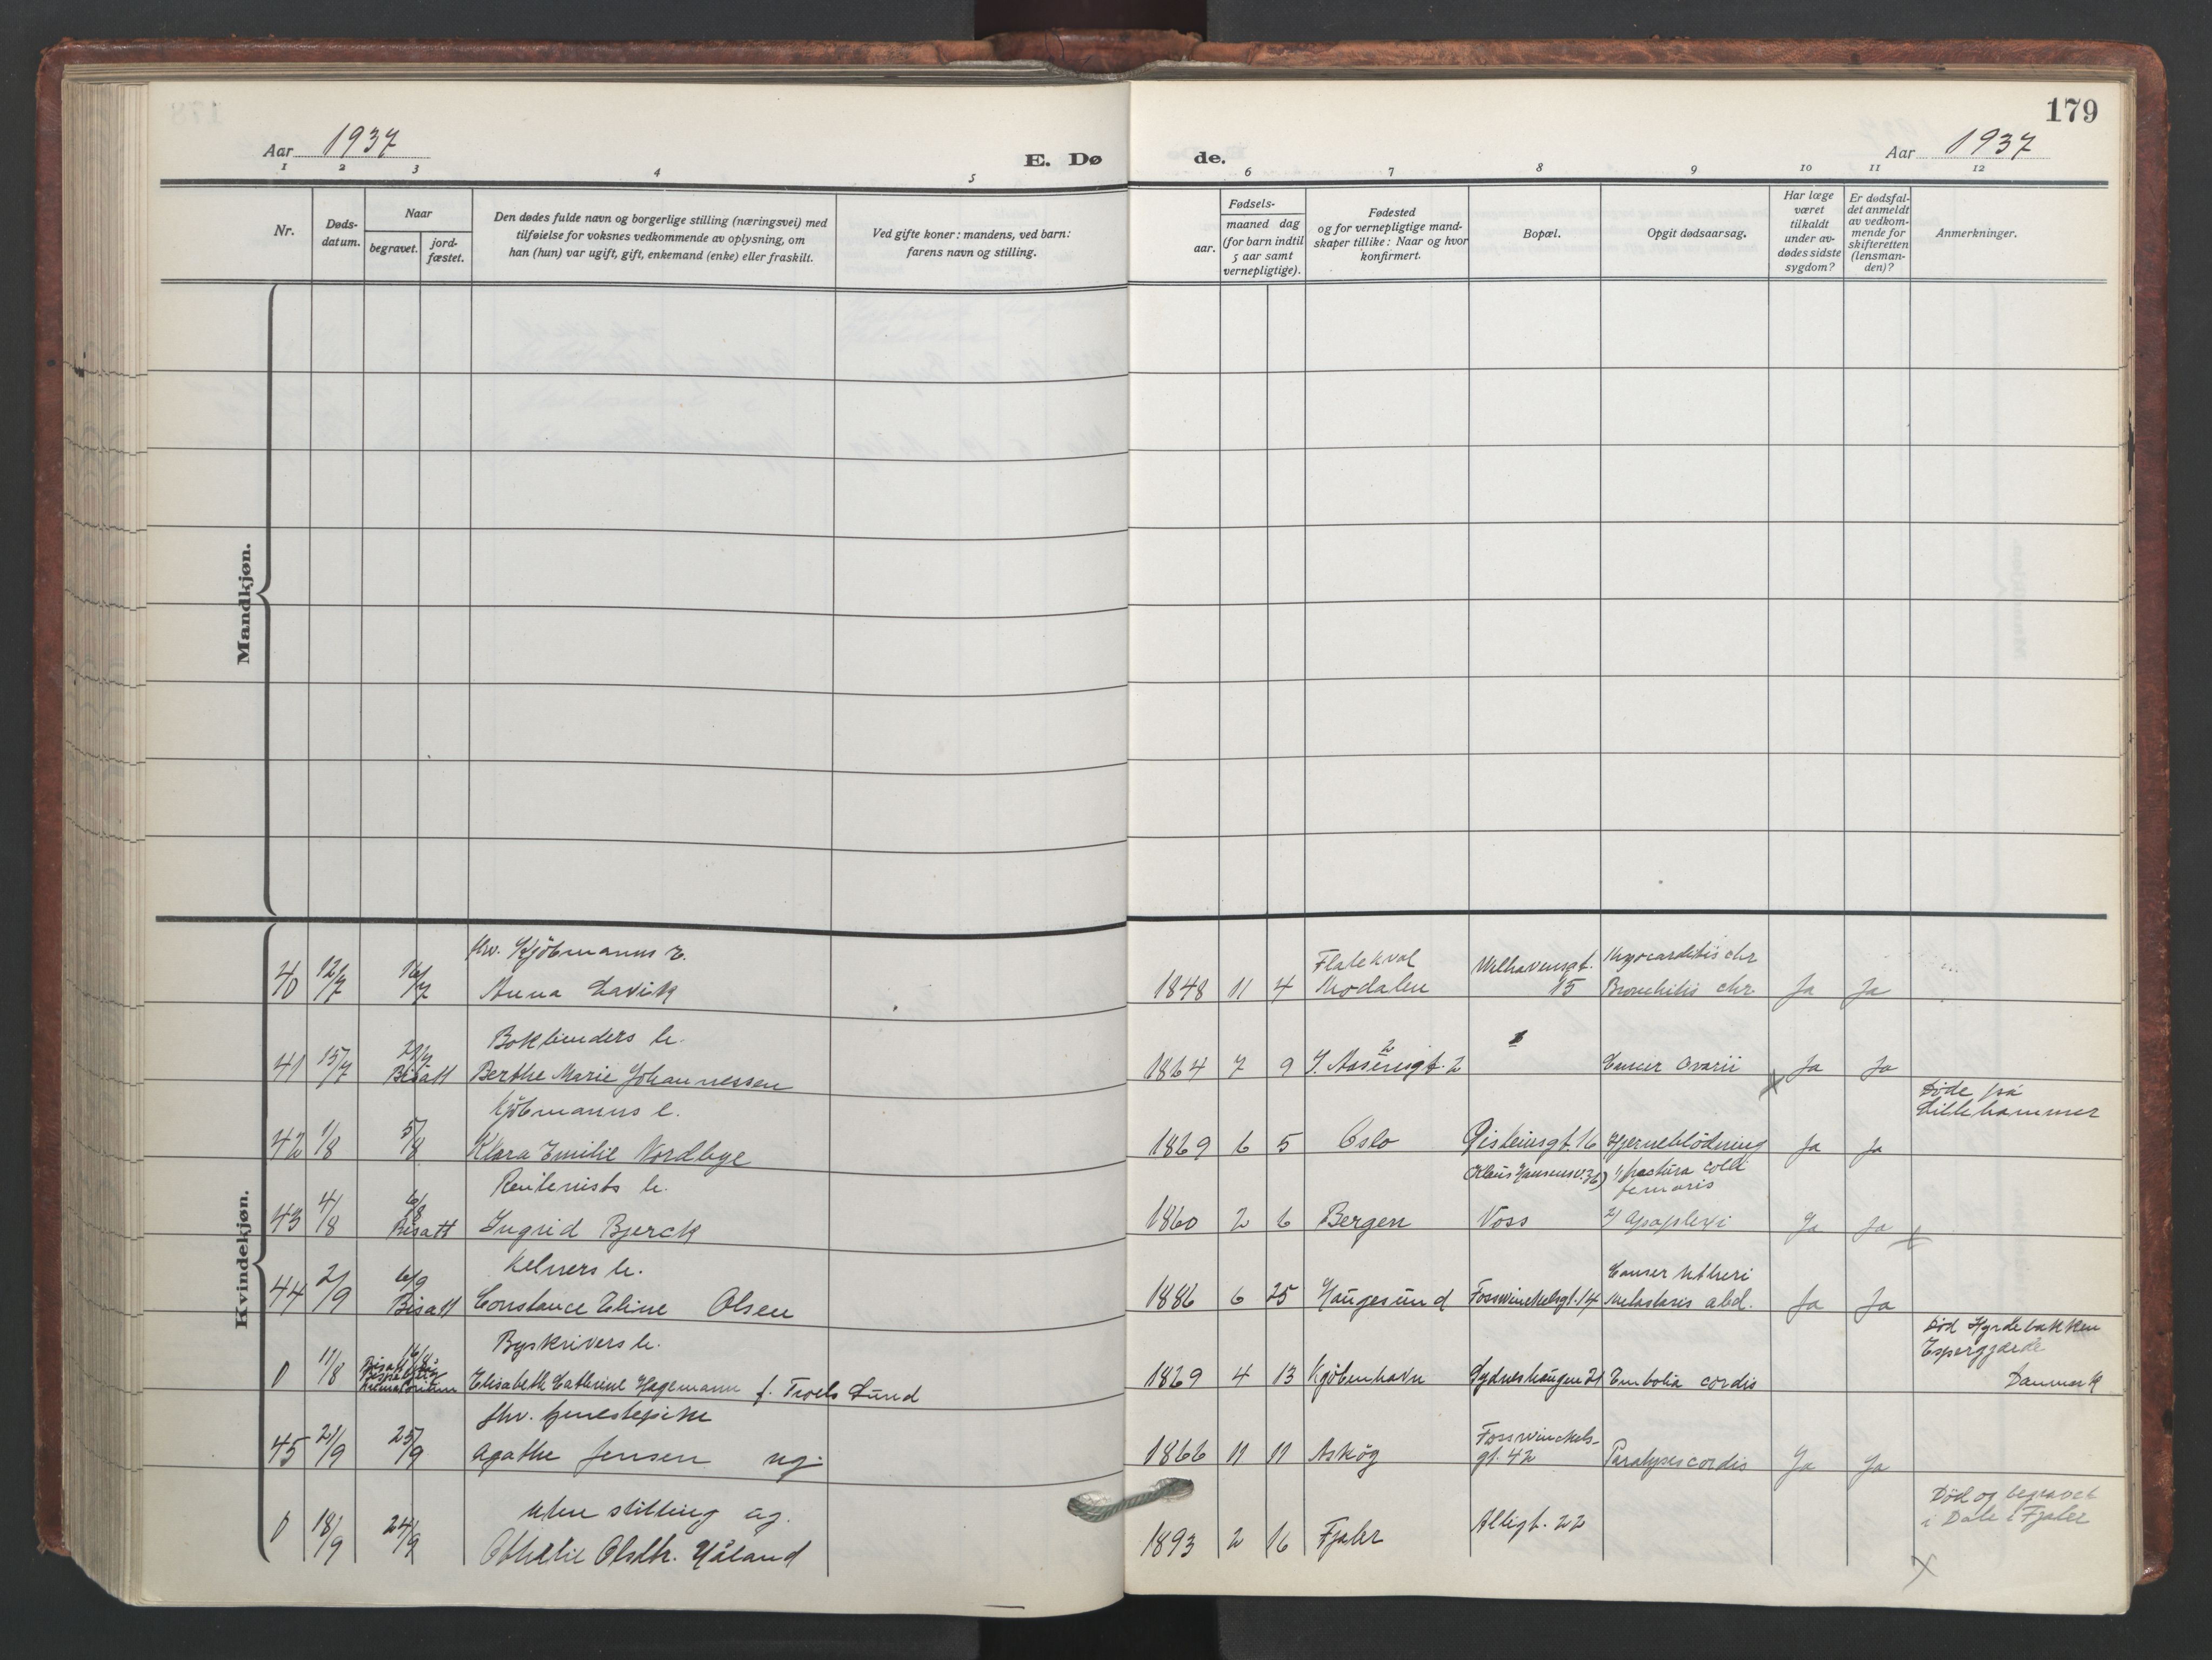 179
Aar 1937
E. Dø
de.
Aar 1937
1 2 3 4 5 6 7 8 9 10 11 12
Nr.
Døds-
datum.
Naar
begravet.
jord-
fæstet.
Den dødes fulde navn og borgerlige stilling (næringsvei) med
tilføielse for voksnes vedkommende av oplysning, om
han (hun) var ugift, gift, enkemand (enke) eller fraskilt.
Ved gifte koner: mandens, ved barn:
farens navn og stilling.
Fødsels-
aar.
maaned dag
(for barn indtil
5 aar samt
vernepligtige).
Fødested
og for vernepligtige mand-
skaper tillike: Naar og hvor
konfirmert.
Bopæl.
Opgit dødsaarsag.
Har læge
været
tilkaldt
under av-
dødes sidste
sygdom?
Er dødsfal-
det anmeldt
av vedkom-
mende for
skifteretten
(lensman-
den)?
Anmerkninger.
Mandkjøn.
Kvindekjøn.
fhv. Kjöbmanns e.
Flatekval Welhavensgt. Myocarditis chr
40 12/7 16/7 Anna Lavik 1848 11 4 Modalen 15 Bronchitis chr Ja Ja
Bokbinders h.
41 15/7 Bisatt Berthe Marie Johannessen 1864 7 9 J. Aasensgt. 2 Cancer ovarii Ja Ja
Kjöbmanns e. Döde på
Lillehammer
42 1/8 5/8 Klara Emilie Nordbye 1869 6 5 Oslo Øisteinsgt. 16 Hjerneblödning Ja Ja
Rentenists h. (Klaus Hansensv. 36) 1/ fractura colli
femoris
43 4/8 6/8 Bisatt Ingrid Bjerck 1860 2 6 Bergen Voss 2/ Apoplexi Ja Ja
Kelners h. Cancer Utheri
44 2/9 6/9 Bisatt Constance Eline Olsen 1886 6 25 Haugesund Fosswinckelsgt. 14 Metastasis abd. Ja Ja
Byskrivers h. Död Hyrdebakken
Espergjærde
0 11/8 16/8 Elisabeth Cathrine Hagemann f. Troels Lund 1869 4 13 Kjöbenhavn Sydneshaugen 21 Embolia cordis Danmark
fhv. tjenestepike Fosswinckels-
45 21/9 25/9 Agathe Jensen ug. 1866 11 11 Askøy gt. 42 Paralysis cordis Ja Ja
uten stilling ug. Allégt. 22 Död og begravet
i Dale i Fjaler
0 18/9 24/9 Othelie Olsdtr. Håland 1893 2 16 Fjaler